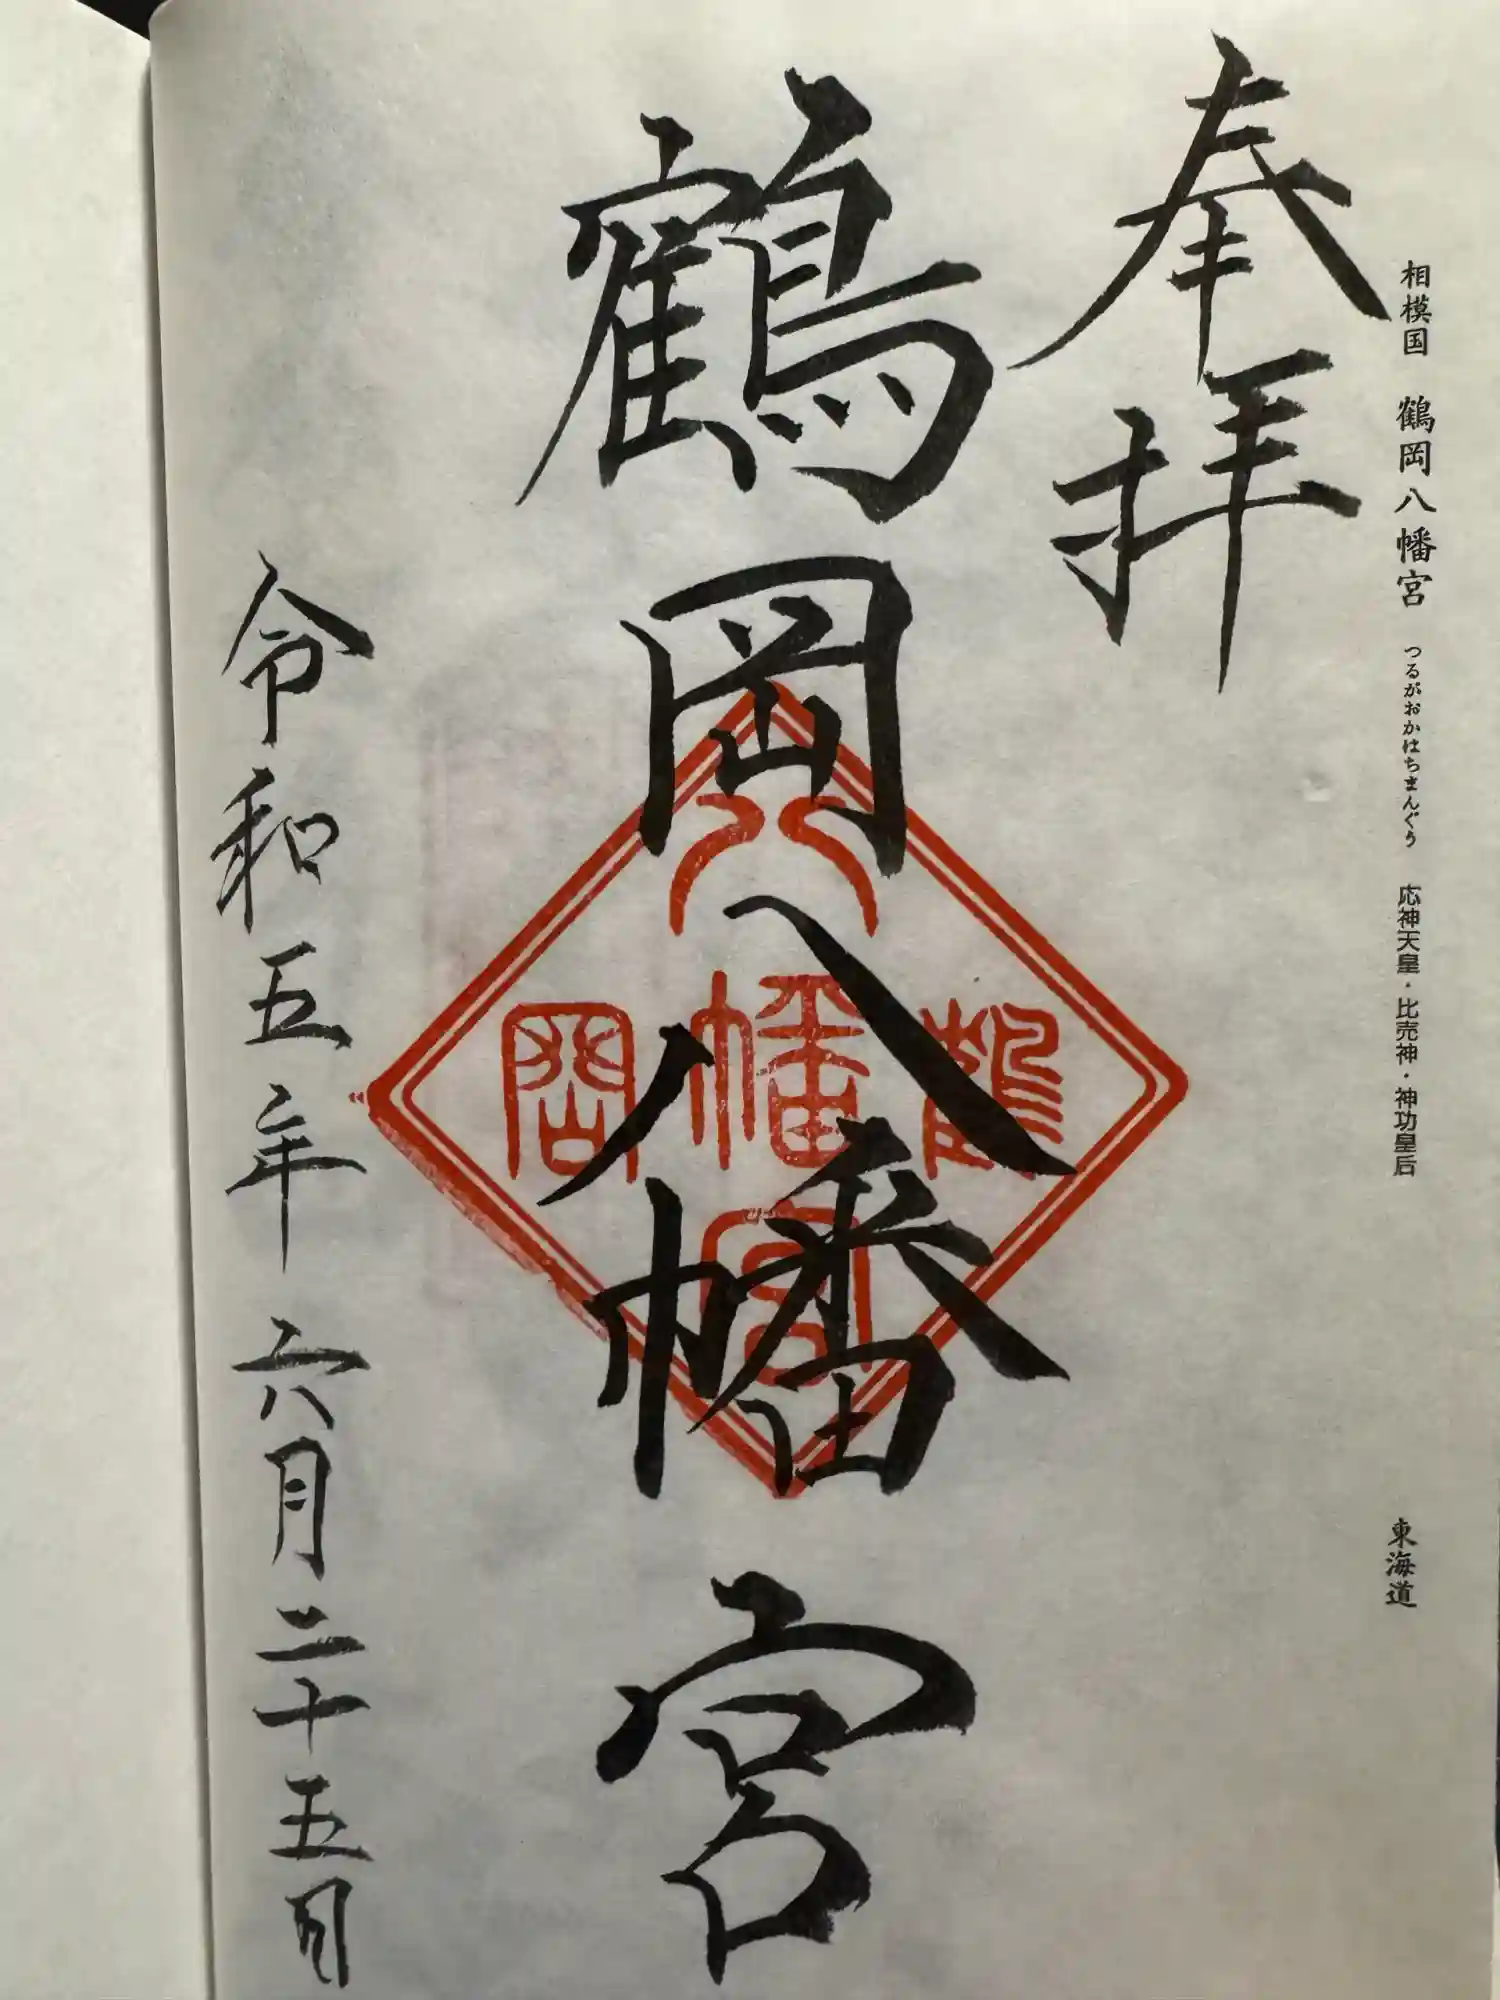 相模国　鶴岡八幡宮　つるがおかはちまんぐう　応神天皇・比売神・神功皇后
東海道
奉拝
鶴岡八幡宮
八
鶴
幡
岡
宮
令和五年六月二十五日